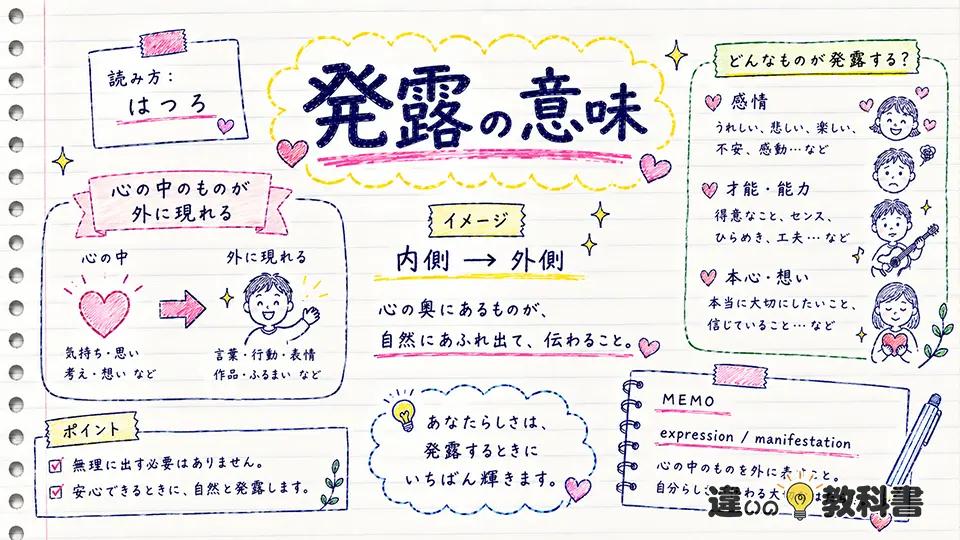 読み方：
はつろ
発露の意味
心の中のものが
外に現れる
心の中
外に現れる
気持ち・思い
考え・想い など
言葉・行動・表情
作品・ふるまい など
イメージ
内側 → 外側
心の奥にあるものが、
自然にあふれ出て、伝わること。
どんなものが発露する？
感情
うれしい、悲しい、楽しい、
不安、感動… など
才能・能力
得意なこと、センス、
ひらめき、工夫… など
本心・想い
本当に大切にしたいこと、
信じていること… など
ポイント
無理に出す必要はありません。
安心できるときに、自然と発露します。
あなたらしさは、
発露するときに
いちばん輝きます。
MEMO
expression / manifestation
心の中のものを外に表すこと。
自分らし
違いの教科書